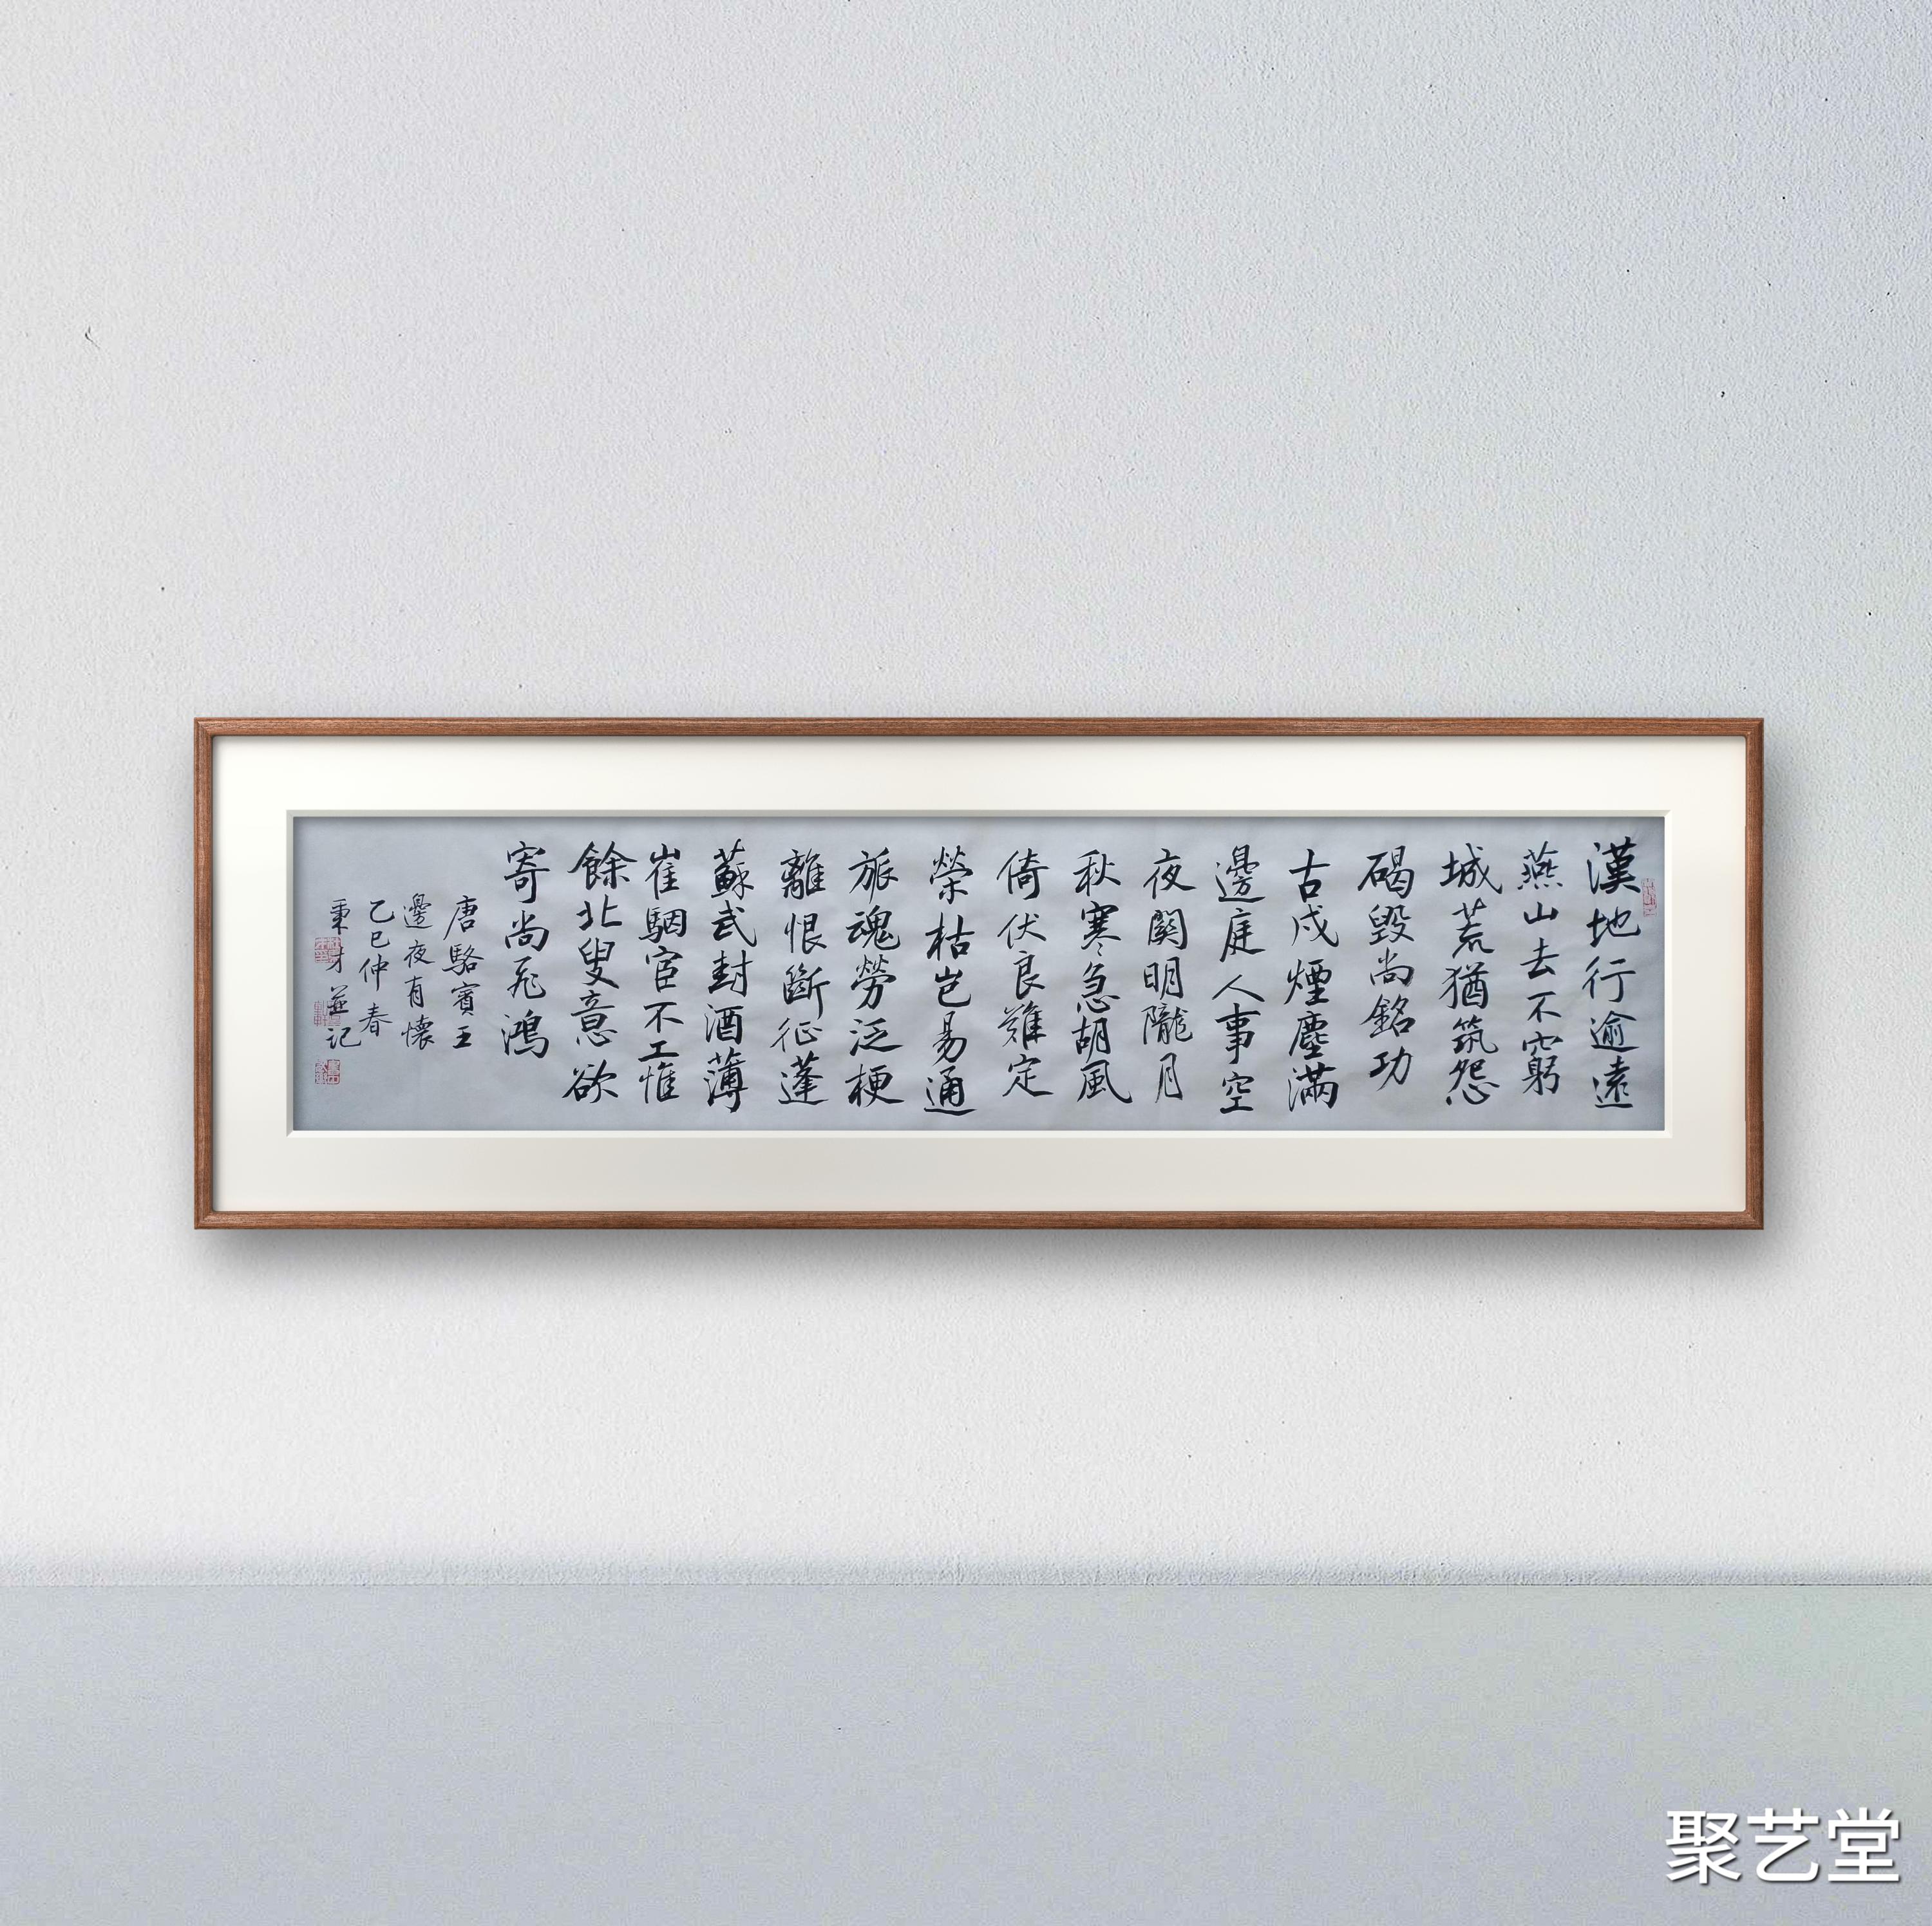 漢地行逾遠
燕山去不窮
城荒猶筑怨
碣毀尚銘功
古戍煙塵滿
邊庭人事空
夜關明隴月
秋寒急胡風
倚伏良難定
榮枯豈易通
旅魂勞泛梗
離恨斷征蓬
蘇武封酒薄
崔駰宦不工惟
餘北叟意欲
寄尚飛鴻
唐駱賓王
邊夜有懷
乙巳仲春
秉才並记
聚艺堂